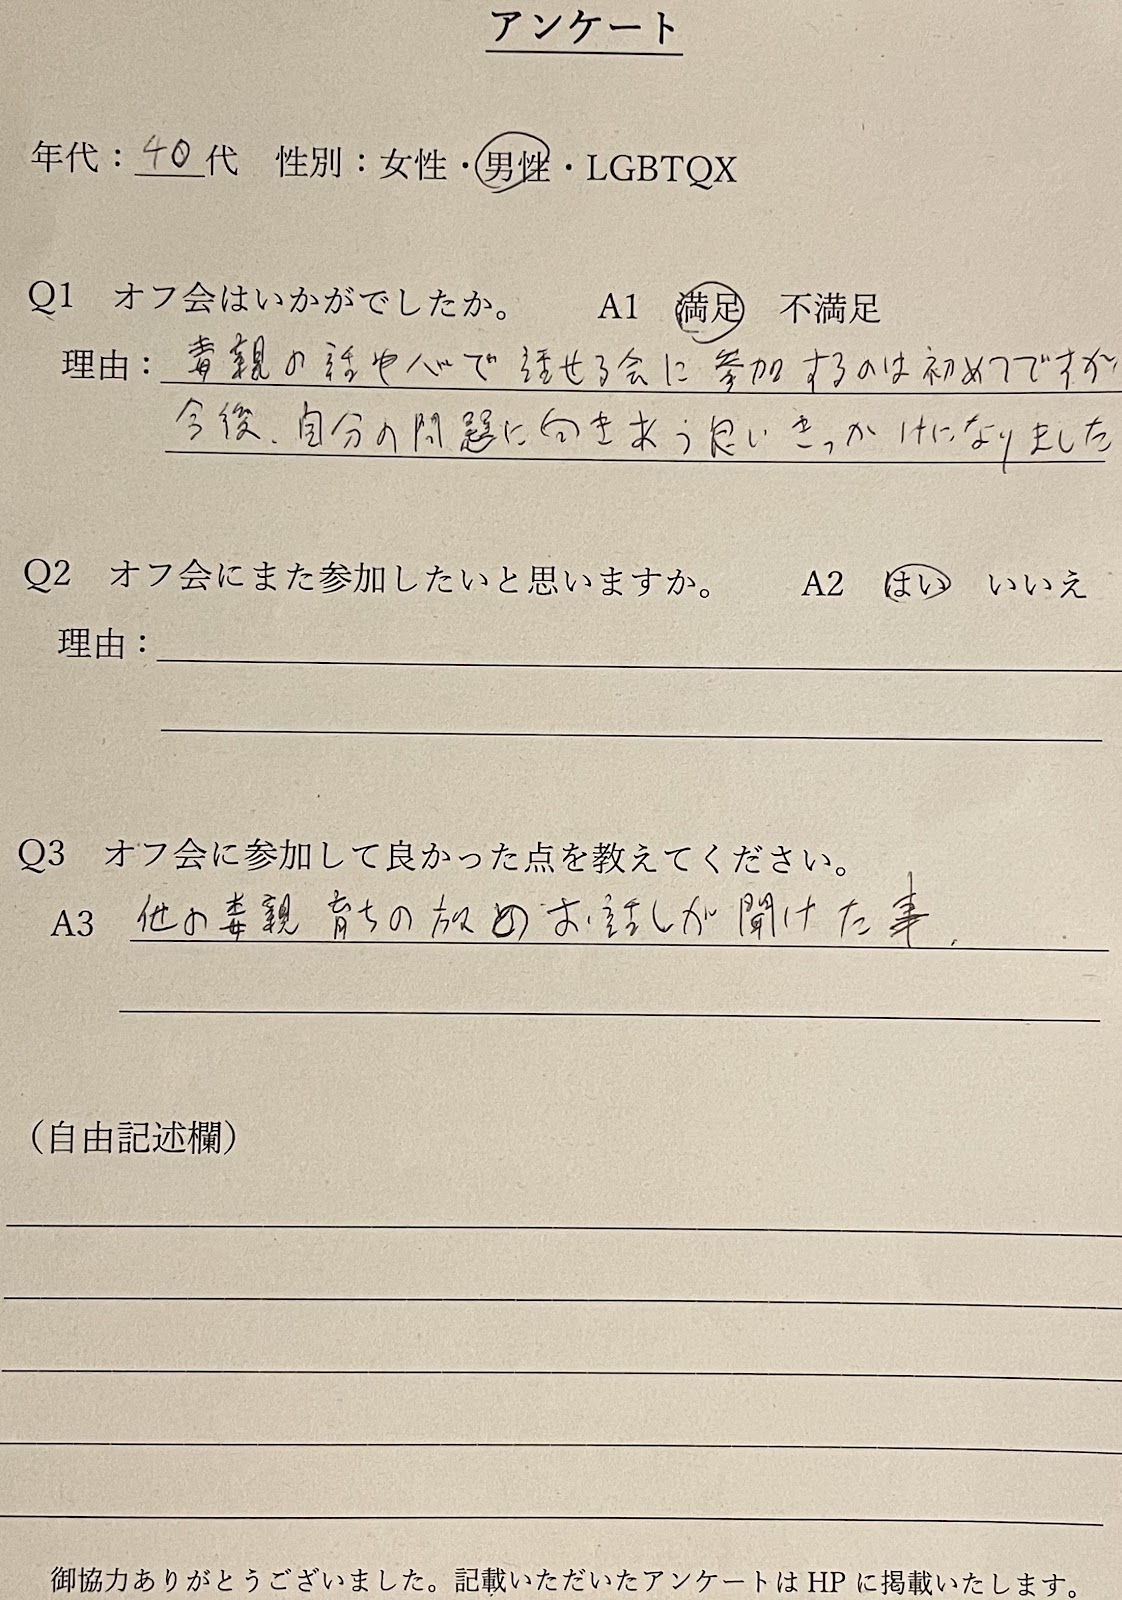 アンケート
年代：40代　性別：女性・男性・LGBTQX
Q1　オフ会はいかがでしたか。　A1　満足　不満足
理由：毒親の話や で話せる会に参加するのは初めてですが
今後、自分の問題に向き合う良いきっかけになりました
Q2　オフ会にまた参加したいと思いますか。　A2　はい　いいえ
理由：
Q3　オフ会に参加して良かった点を教えてください。
A3　他の毒親育ちの のお話しが聞けた事。
（自由記述欄）
御協力ありがとうございました。記載いただいたアンケートはHPに掲載いたします。